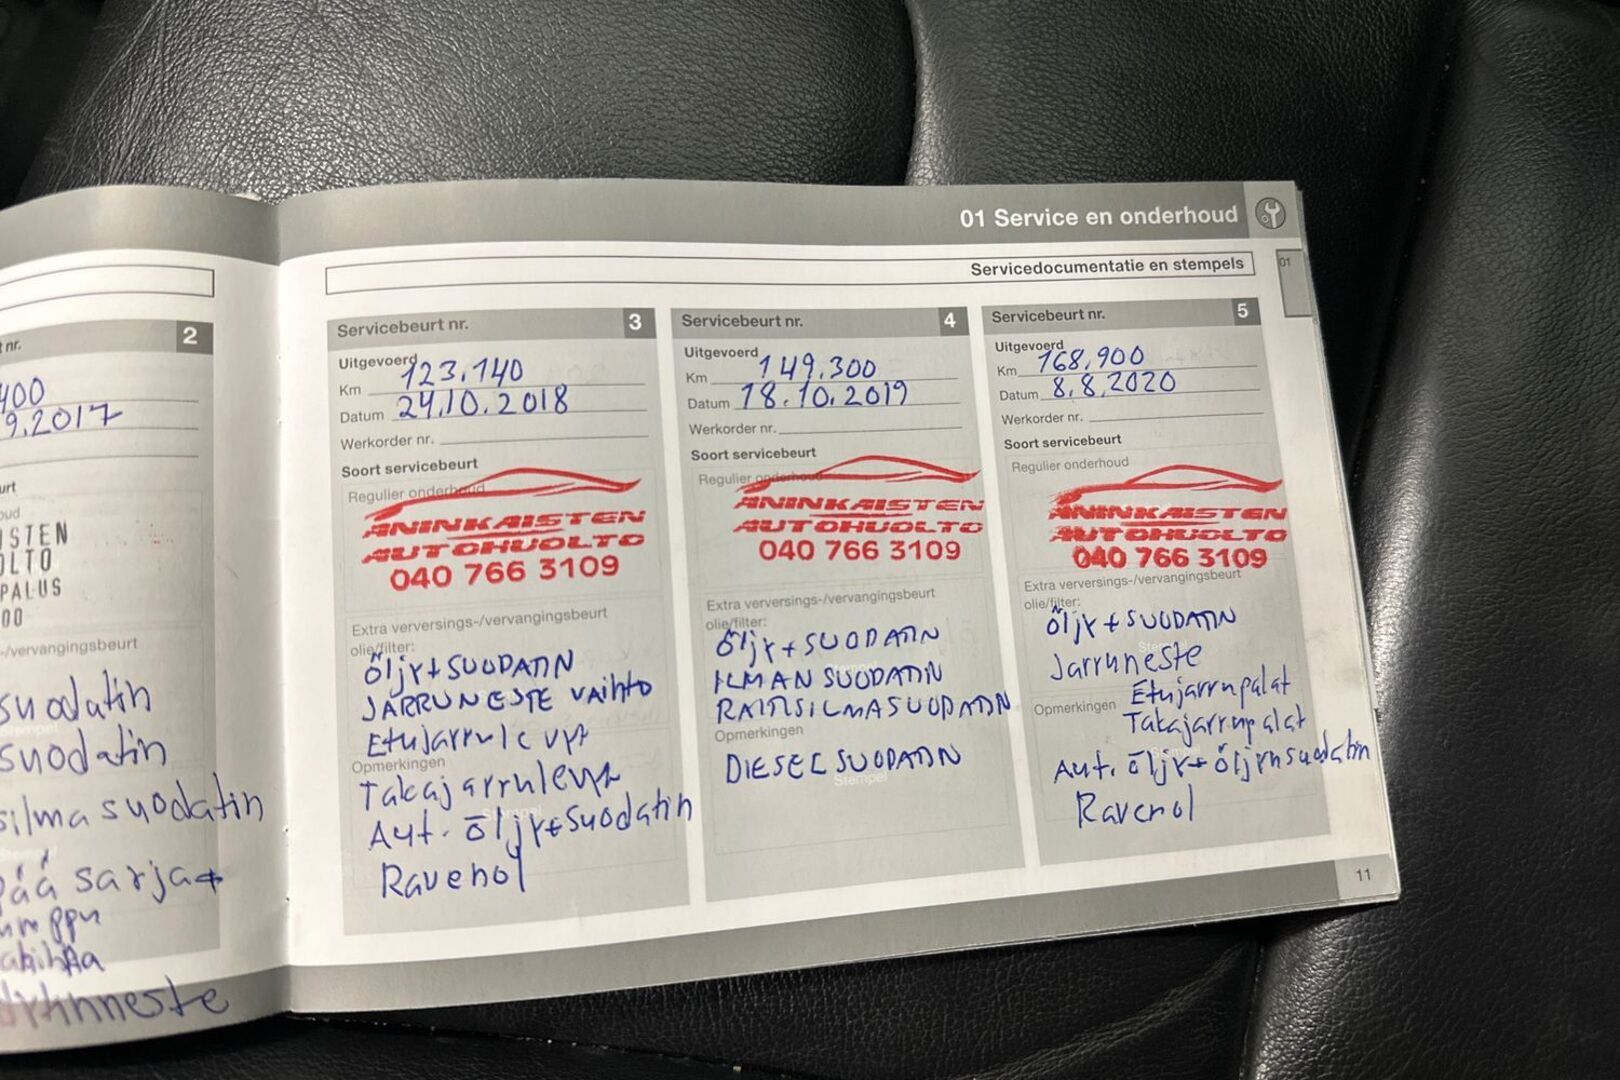 01 Service en onderhoud
Servicedocumentatie en stempels
01
nr.
2
400
9.2017
urt
oud
ISTEN
OLTO
PALUS
00
-/vervangingsbeurt
suodatin
suodatin
silmasuodatin
pää sarja+
Servicebeurt nr.
3
Uitgevoerd
Km 123.140
Datum 24.10.2018
Werkorder nr.
Soort servicebeurt
Regulier onderhoud
ANINKAISTEN
AUTOHUOLTO
040 766 3109
Extra verversings-/vervangingsbeurt
olie/filter:
öljyt+SUODATIN
JARRUNESTE VAIHTO
Etujarrulevyt
Opmerkingen
Takajarrulevyt
Stempel
Aut. öljyt+suodatin
Ravenol
Servicebeurt nr.
4
Uitgevoerd
Km 149.300
Datum 18.10.2019
Werkorder nr.
Soort servicebeurt
Regulier onderhoud
ANINKAISTEN
AUTOHUOLTO
040 766 3109
Extra verversings-/vervangingsbeurt
olie/filter:
öljyt+SUODATIN
ILMAN SUODATIN
RAITISILMASUODATIN
Opmerkingen
DIESEL SUODATIN
Stempel
Servicebeurt nr.
5
Uitgevoerd
Km 168,900
Datum 8.8.2020
Werkorder nr.
Soort servicebeurt
Regulier onderhoud
ANINKAISTEN
AUTOHUOLTO
040 766 3109
Extra verversings-/vervangingsbeurt
olie/filter:
öljyt+SUODATIN
Jarruneste
Etujarrupalat
Opmerkingen
Takajarrupalat
Aut. öljyt+öljynsuodatin
Ravenol
11